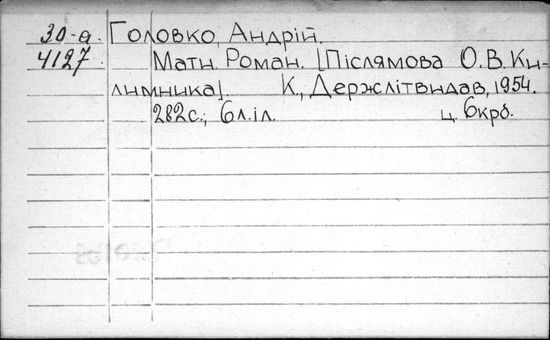 30-а. Головко, Андрій.
4127 Мати. Роман. [Післямова О.В. Ки-
лимника]. К., Держлітвидав, 1954.
282с.; 6л.іл. ц. 6крб.